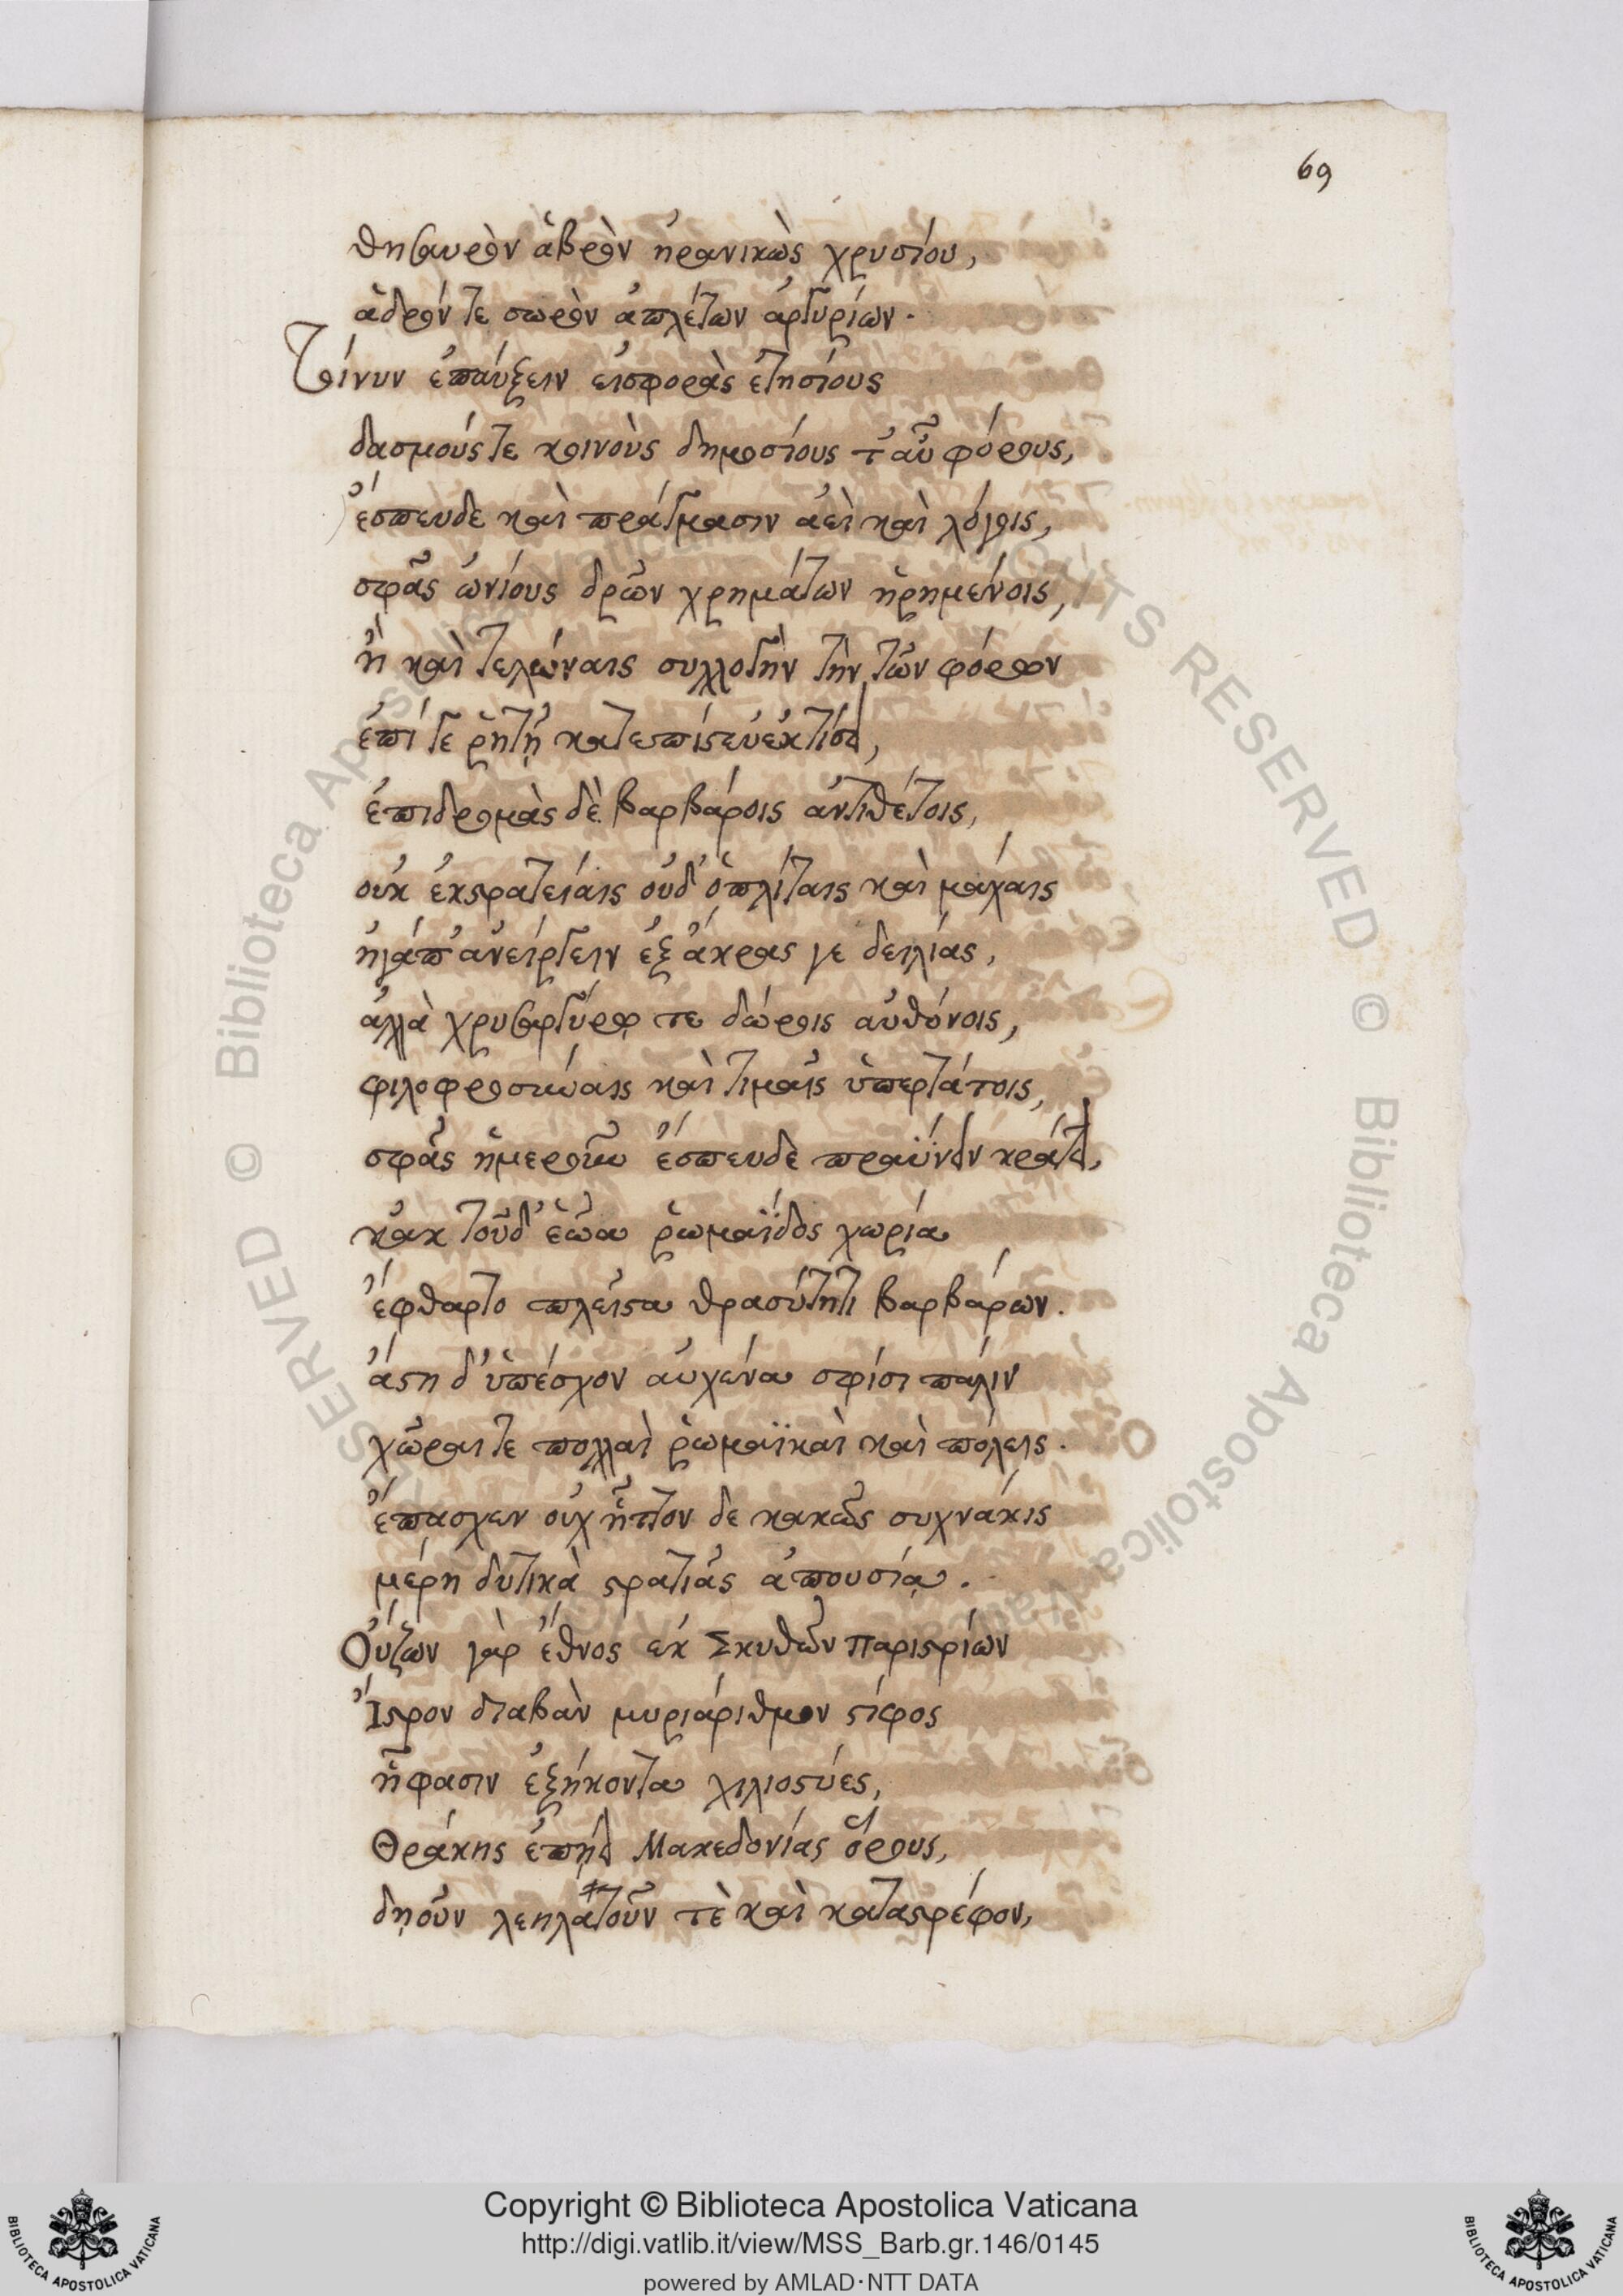 69
θησαυρὸν ἁβρὸν ἠρανικὼς χρυσίου,
ἁδρόν τε σωρὸν ἀπλέτων ἀργυρίων.
Τοίνυν ἐπαύξειν εἰσφορὰς ἐτησίους
δασμούς τε κοινοὺς δημοσίους τ' αὖ φόρους,
ἔσπευδε καὶ πράγμασιν ἀεὶ καὶ λόγοις,
σφᾶς ὠνίους δρῶν χρημάτων ᾑρημένοις,
ἢ καὶ τελώναις συλλογὴν τὴν τῶν φόρων
ἐπί γε ῥητῇ κατεπίστευ' ἐκτίσει,
ἐπιδρομὰς δὲ βαρβάροις ἀντιθέτοις,
οὐκ ἐκστρατείαις οὐδ' ὁπλίταις καὶ μάχαις
ἠγάπ' ἀνείργειν ἐξ ἄκρας γε δειλίας,
ἀλλὰ χρυσαργύρῳ τε δώροις ἀφθόνοις,
φιλοφροσύναις καὶ τιμαῖς ὑπερτάτοις,
σφᾶς ἡμεροῦν ἔσπευδε πραΰνειν κράτει,
κἀκ τοῦδ' ἑῷα ῥωμαΐδος χωρία
ἔφθαρτο πλεῖστα θρασύτητι βαρβάρων.
ἄστη δ' ὑπέσχον αὐχένα σφίσι πάλιν
χῶραι τε πολλαὶ ῥωμαϊκαὶ καὶ πόλεις.
ἔπασχεν οὐχ ἧττον δε κακῶς συχνάκις
μέρη δυτικὰ στρατιᾶς ἀπουσίᾳ.
Οὔζων γὰρ ἔθνος ἐκ Σκυθῶν Παριστρίων
Ἴστρον διαβὰν μυριάριθμον στίφος
ἥ φασιν ἑξήκοντα χιλιοστύες,
Θράκης ἐπῄει Μακεδονίας ὅρους,
δῃοῦν λεηλατοῦν τὲ καὶ καταστρέφον,
Copyright © Biblioteca Apostolica Vaticana
http://digi.vatlib.it/view/MSS_Barb.gr.146/0145
powered by AMLAD·NTT DATA